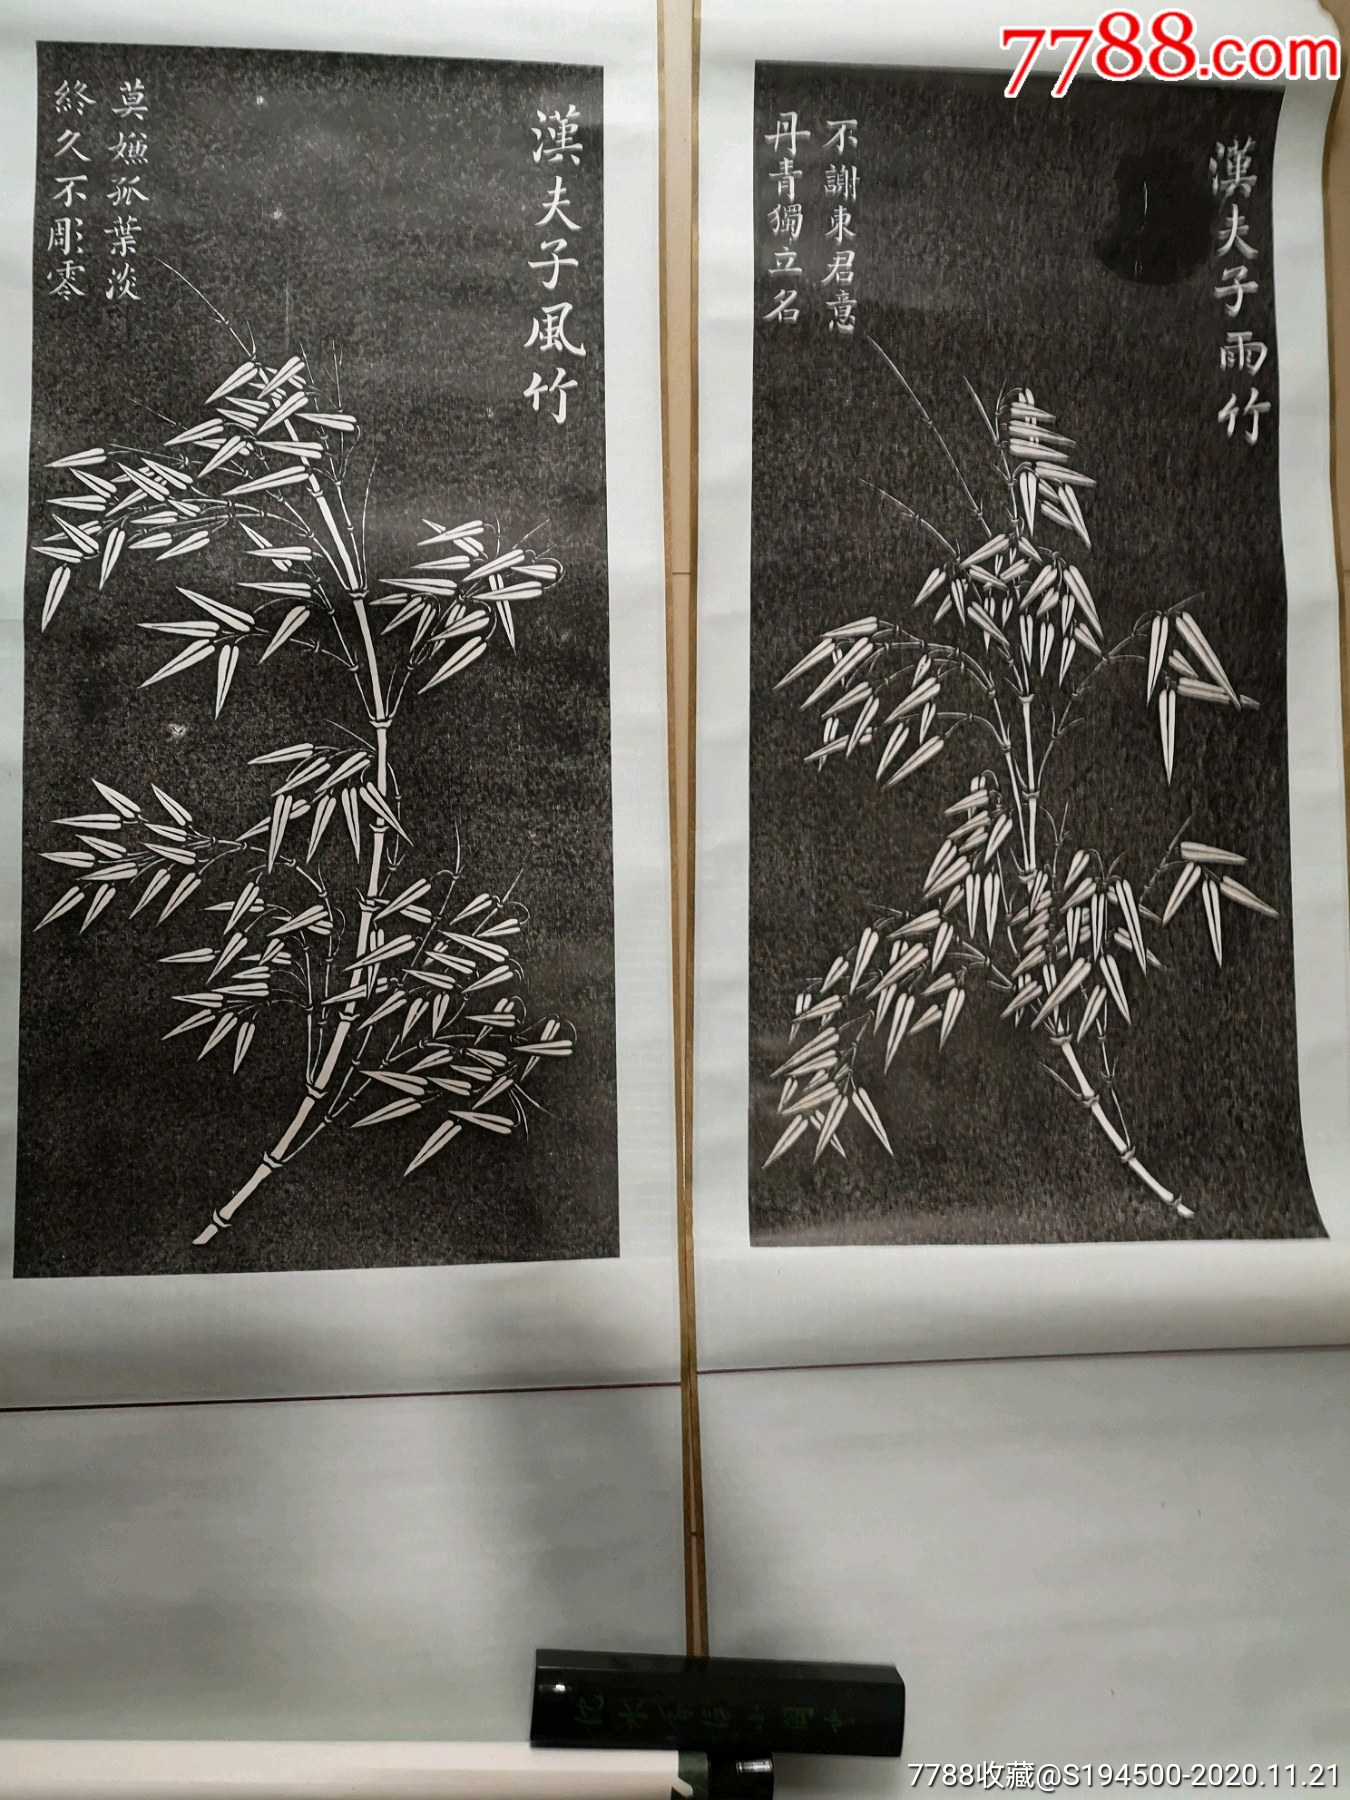 7788.com
漢夫子風竹
莫嫌孤葉淡
終久不彫零
漢夫子雨竹
不謝東君意
丹青獨立名
7788收藏@S194500-2020.11.21